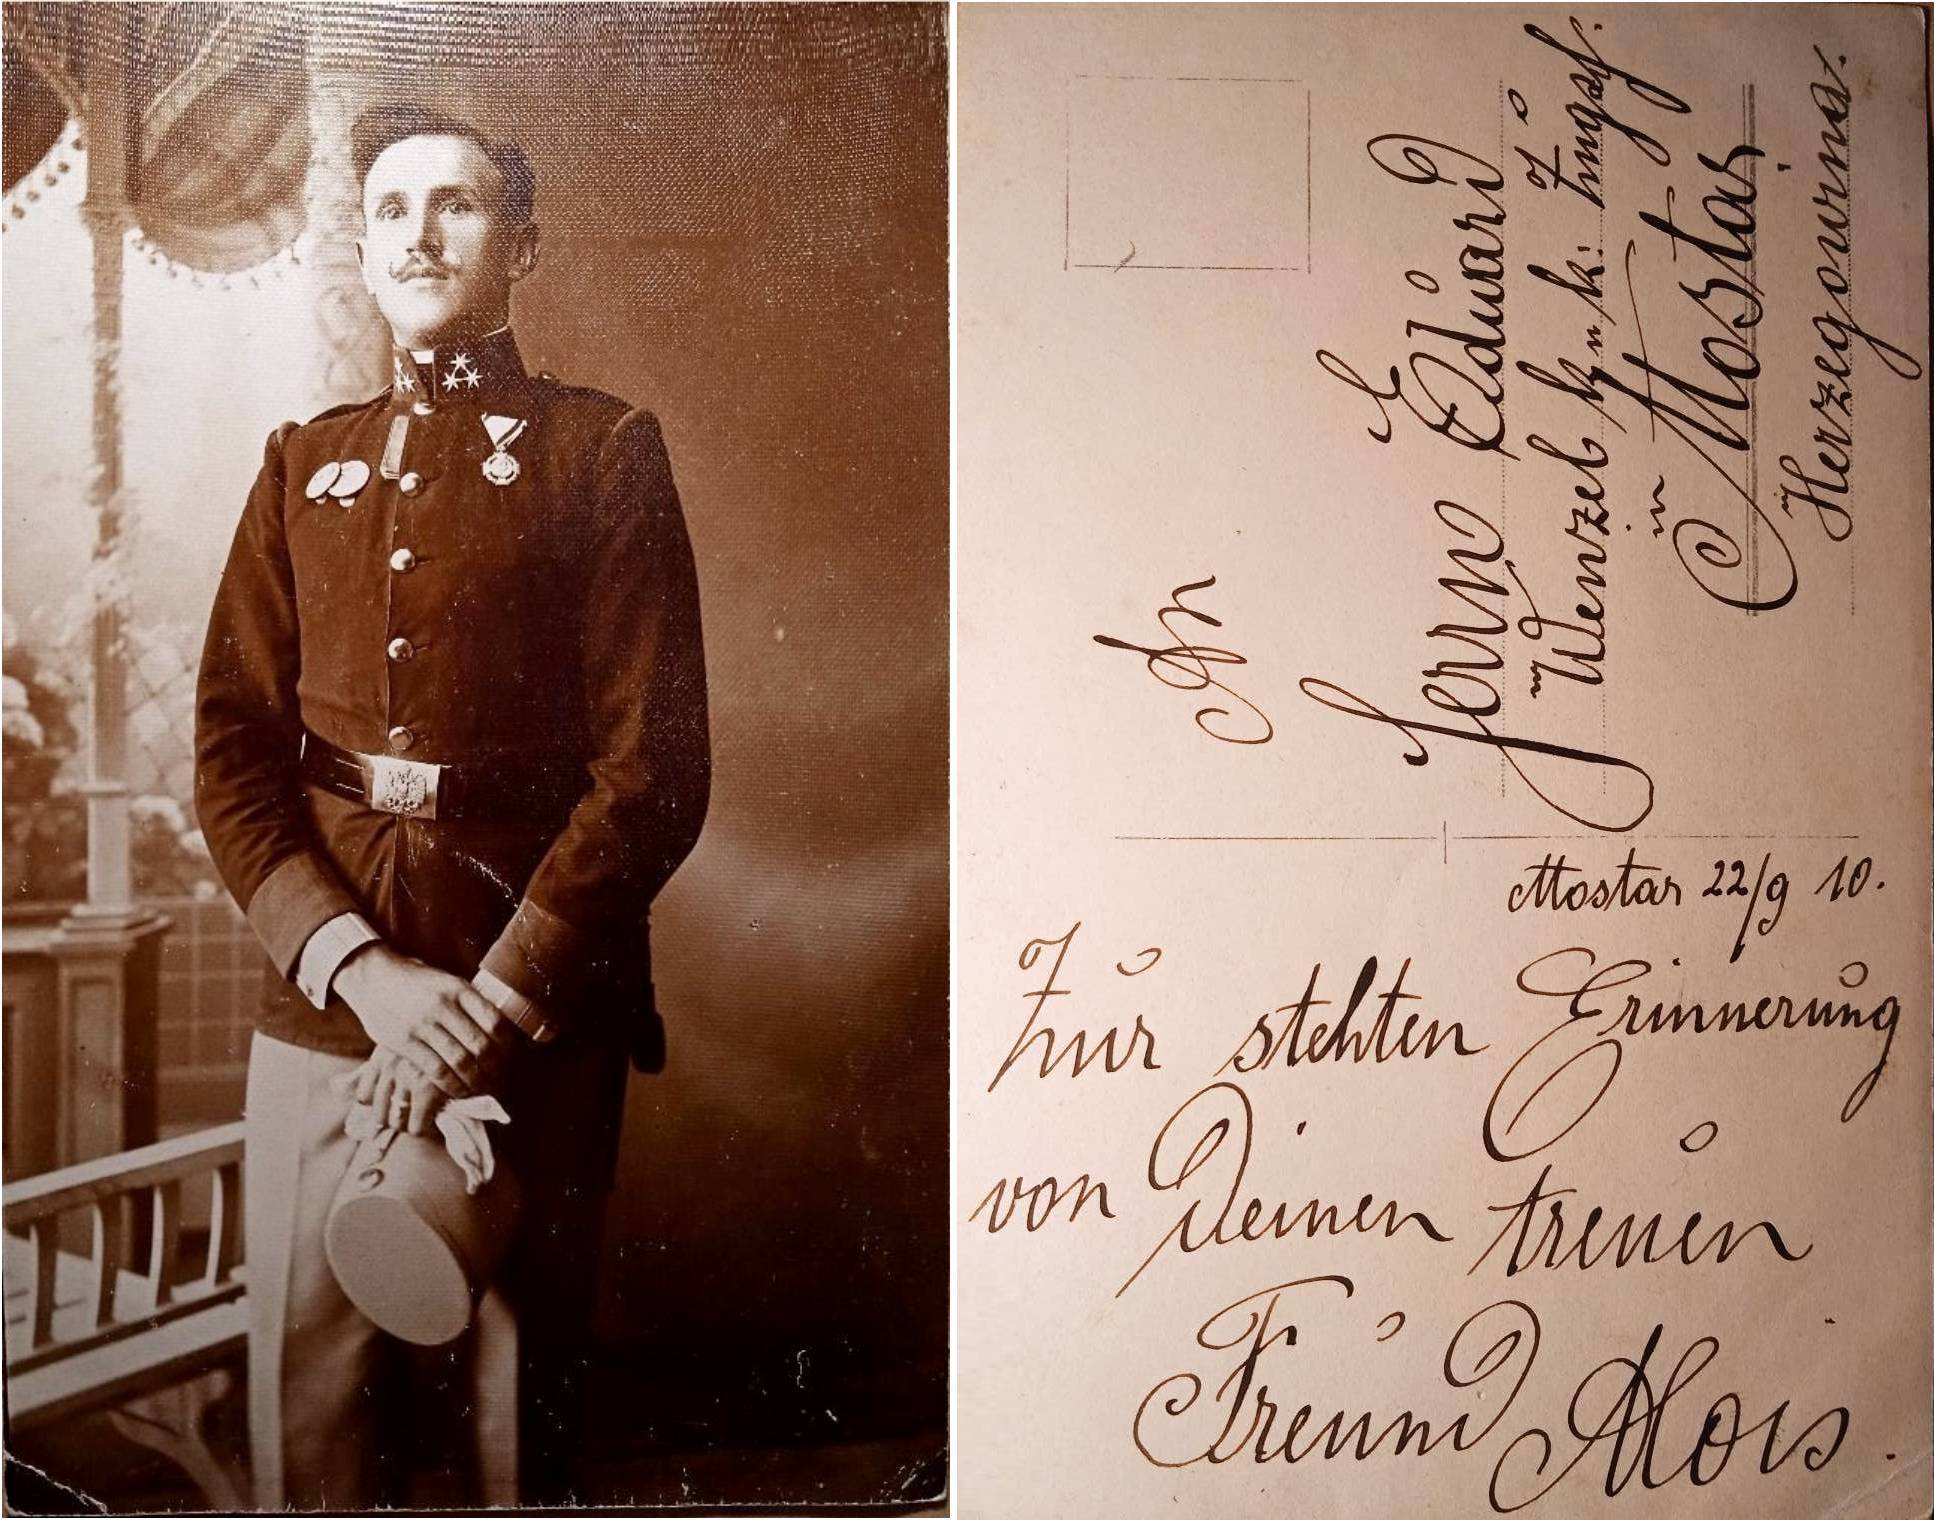 An
Herrn Eduard
Wenzel k. u. k. Zugsf.
in Mostar,
Herzegowina.
Mostar 22/9 10.
Zur stehten Erinnerung
von Deinen treuen
Freund Alois.